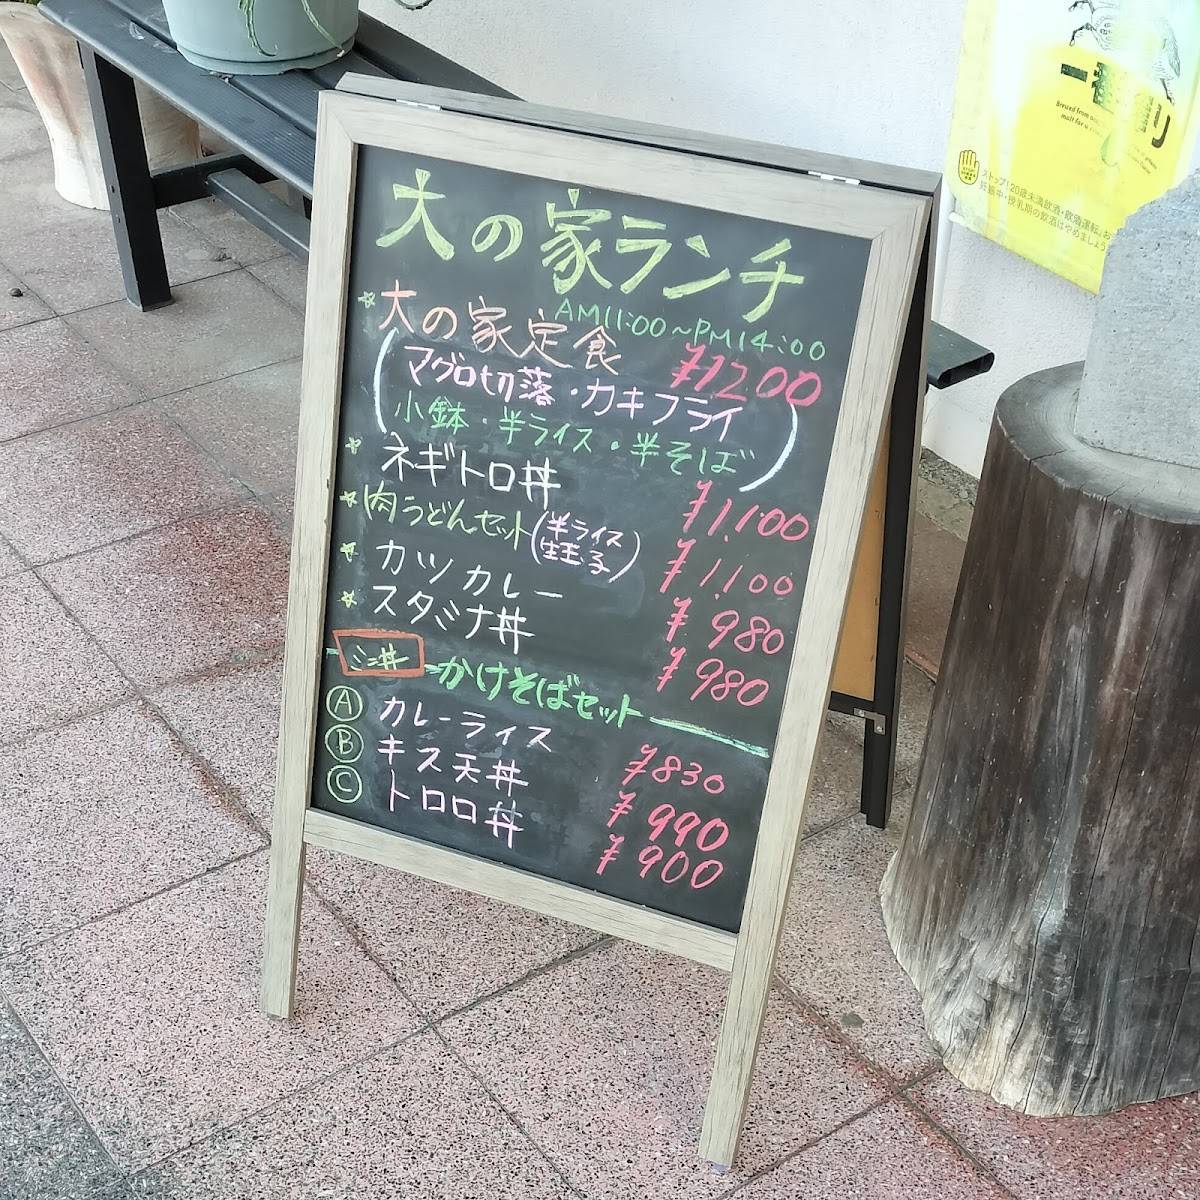 大の家ランチ
AM11:00～PM14:00
☆大の家定食 ¥1200
(マグロ切落・カキフライ
小鉢・半ライス・半そば)
☆ネギトロ丼 ¥1,100
☆肉うどんセット(半ライス 生玉子) ¥1,100
☆カツカレー ¥980
☆スタミナ丼 ¥980
ミニ丼 かけそばセット
Ⓐ カレーライス ¥830
Ⓑ キス天丼 ¥990
Ⓒ トロロ丼 ¥900
一番 り
ストップ!20歳未満飲酒・飲酒運転。お
妊娠中・授乳期の飲酒はやめましょう